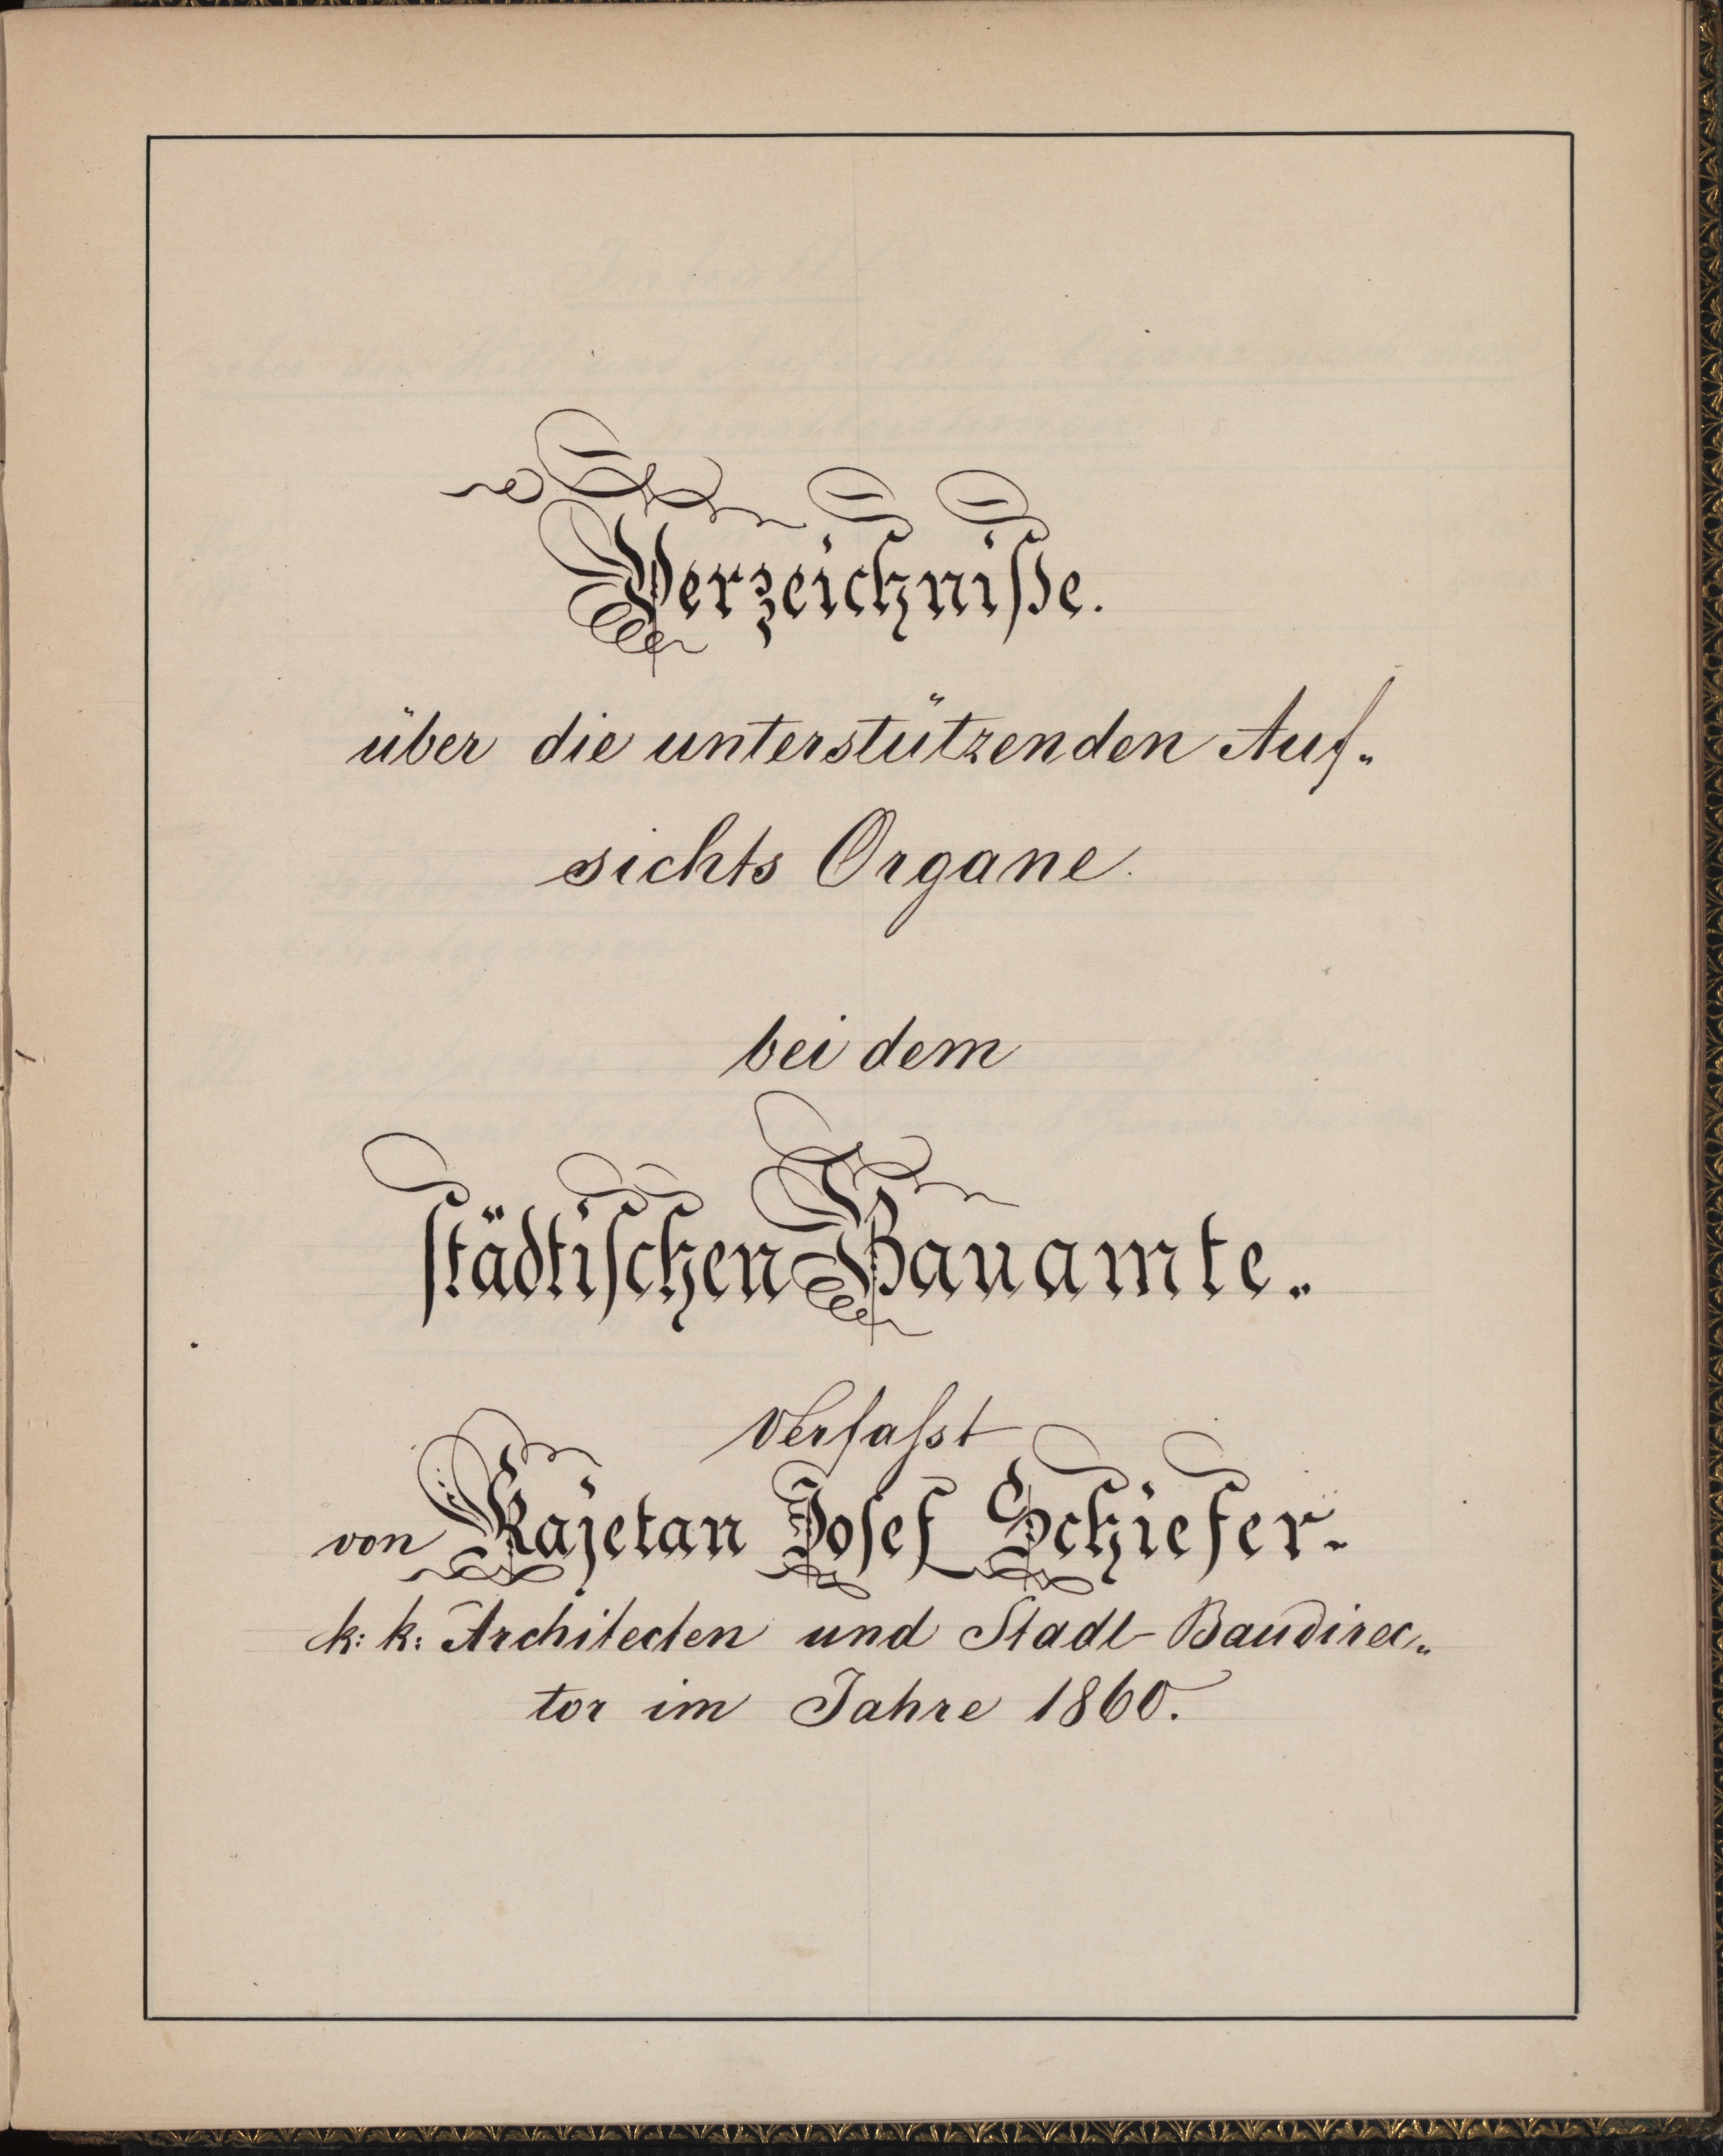 Verzeichniße.
über die unterstützenden Auf„
sichts Organe.
bei dem
städtischen Bauamte„
Verfaßt
von Kajetan Josef Schiefer.
k: k: Architecten und Stadt-Baudirec„
tor im Jahre 1860.